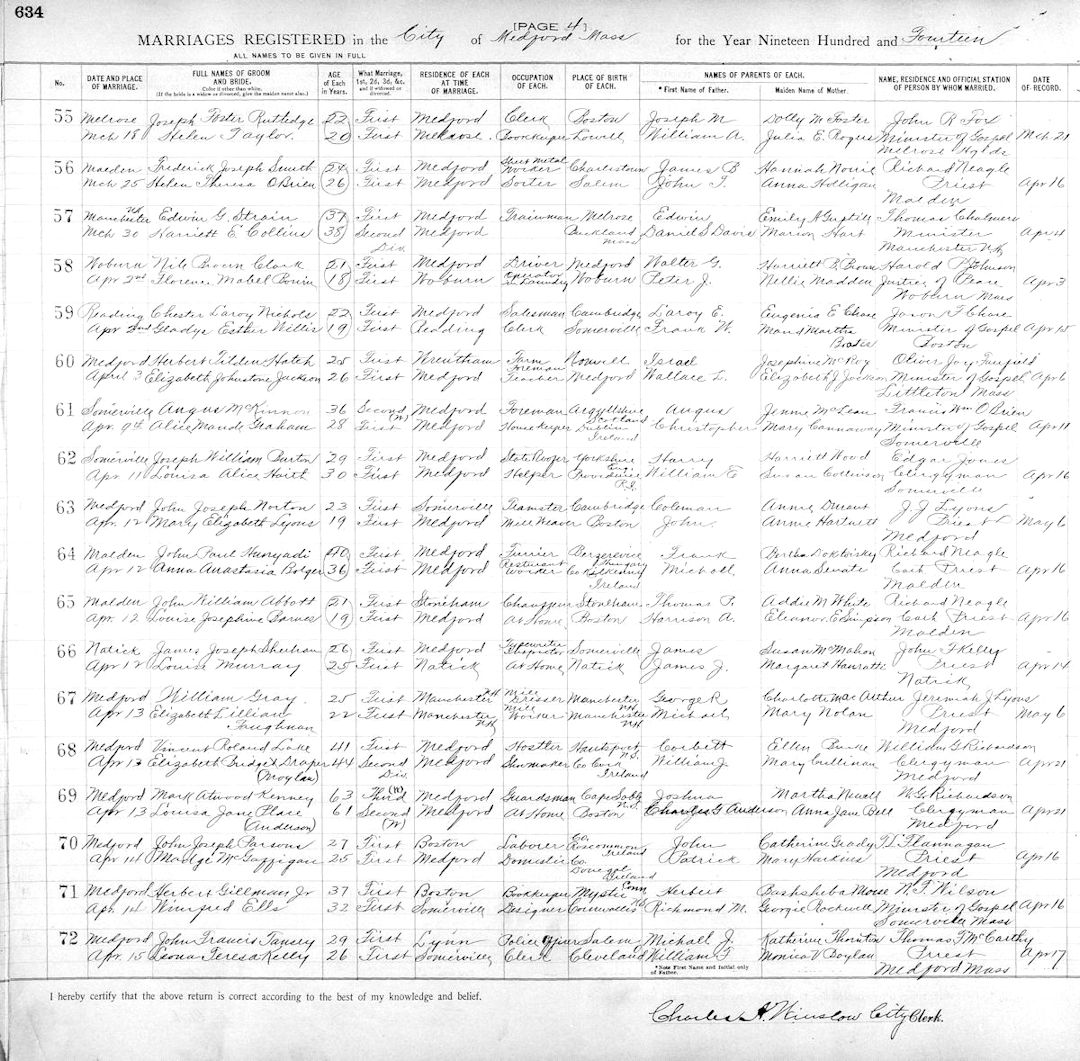 634
[PAGE 4]
MARRIAGES REGISTERED in the City of Medford Mass for the Year Nineteen Hundred and Fourteen
ALL NAMES TO BE GIVEN IN FULL
No. DATE AND PLACE OF MARRIAGE. FULL NAMES OF GROOM AND BRIDE. Color if other than white. (If the bride is a widow or divorced, give the maiden name also.) AGE of Each in Years. What Marriage, 1st, 2d, 3d, &c. and if widowed or divorced. RESIDENCE OF EACH AT TIME OF MARRIAGE. OCCUPATION OF EACH. PLACE OF BIRTH OF EACH. NAMES OF PARENTS OF EACH. * First Name of Father. Maiden Name of Mother. NAME, RESIDENCE AND OFFICIAL STATION OF PERSON BY WHOM MARRIED. DATE OF RECORD.
55 Melrose Joseph Foster Rutledge 22 First Medford Clerk Boston Joseph M Dolly M Foster John R Fox
Mch 18 Helen Taylor 20 First Melrose Bookkeeper Lowell William A. Julia E. Rogers Minister of Gospel Mch 21
Melrose Hglds
56 Malden Frederick Joseph Smith 24 First Medford Sheet Metal Worker Charlestown James B Hannah Richard Neagle
Mch 25 Helen Theresa O'Brien 26 First Medford Sorter Salem John T. Anna Holligan Priest Apr 16
Malden
57 Manchester NH Edwin G. Strain 37 First Medford Trainman Melrose Edwin Emily A Guptill Thomas Chalmers
Mch 30 Harriett E Collins 38 Second Div Medford Buckland Mass Daniel S Davis Marion Hart Minister Apr 4
Manchester NH
58 Woburn Nile Brown Clark 21 First Medford Driver Medford Walter G. Harriett B. Brown Harold P Johnson
Apr 2nd Florence Mabel 18 First Woburn Operator in Laundry Woburn Peter J. Nellie Madden Justice of Peace Apr 3
Woburn Mass
59 Reading Chester Laroy Nichols 22 First Medford Salesman Cambridge Laroy E. Eugenia E Chase Jason F Chase
Apr 2nd Gladys Esther Willis 19 First Reading Clerk Somerville Frank W. Maud Martha Minister of Gospel Apr 15
Boston
60 Medford Herbert Tilden Hatch 25 First Wrentham Farm Foreman Roswell Israel Josephine McRoy Oliver Jay Fairfield
April 3 Elizabeth Johnstone Jackson 26 First Medford Teacher Medford Wallace L. Elizabeth J Jackson Minister of Gospel Apr 6
Littleton Mass
61 Somerville Angus McKinnon 36 Second (W) Medford Foreman Argyllshire Scotland Angus Jennie McLean Francis Wm O'Brien
Apr. 9th Alice Maude Graham 28 First Medford Housekeeper Dublin Ireland Christopher Mary Cannaway Minister of Gospel Apr 11
Somerville
62 Somerville Joseph William Burton 29 First Medford Yorkshire Eng Harry Harriett Wood Edgar Jones
Apr 11 Louisa Alice Hirth 30 First Medford Helper Providence R.I. William E Susan Collinson Clergyman Apr 16
Somerville
63 Medford John Joseph Norton 23 First Somerville Teamster Cambridge Coleman Annie Durant J.J Lyons
Apr. 12 Mary Elizabeth Lyons 19 First Medford Mill Weaver Boston John Annie Hartnett Priest May 6
Medford
64 Malden John Paul Hunyadi 40 First Medford Furrier Hungary Frank Bertha Richard Neagle
Apr 12 Anna Anastasia Bolger 36 First Medford Restaurant Worker Co Kilkenny Ireland Michael Anna Senate Cath Priest Apr 16
Malden
65 Malden John William Abbott 21 First Stoneham Chauffeur Stoneham Thomas P. Addie M White Richard Neagle
Apr. 12 Louise Josephine Barnes 19 First Medford At Home Boston Harrison A. Eleanor E Simpson Cath Priest Apr 16
Malden
66 Natick James Joseph Sheehan 26 First Medford Typewriter Somerville James Susan McMahon John F Kelley
Apr 12 Louise Murray 25 First Natick At Home Natick James J. Margaret Hanratte Priest Apr 14
Natick
67 Medford William Gray 25 First Manchester NH Mill Manchester N.H. George R Charlotte MacArthur Jeremiah J Lyons
Apr 13 Elizabeth Lillian Faughnan 22 First Manchester NH Mill Worker Manchester NH Michael Mary Nolan Priest May 6
Medford
68 Medford Vincent Roland Lake 41 First Medford Hostler Hantsport N.S. Corbett Ellen Burke William G Richardson
Apr 13 Elizabeth Bridget Draper (Moylan) 44 Second Div. Medford Shoemaker Co Cork Ireland William J. Mary Cullinan Clergyman Apr 21
Medford
69 Medford Mark Atwood Kenney 63 Third (W) Medford Guardsman Cape Sable N.S. Joshua Martha Newell W.G. Richardson
Apr 13 Louisa Jane Place (Anderson) 61 Second (W) Medford At Home Boston Charles G Anderson Anna Jane Bell Clergyman Apr 21
Medford
70 Medford John Joseph Parsons 27 First Boston Laborer Co. Roscommon Ireland John Catherine Grady T.L. Flannagan
Apr 14 Madge McGaffigan 25 First Medford Domestic Co Donegal Ireland Patrick Mary Harkins Priest Apr 16
Medford
71 Medford Herbert Gillman Jr 37 First Boston Bookkeeper Mystic Conn Herbert Bashsheba Morse N.T. Wilson
Apr. 14 Winifred Ells 32 First Somerville Designer Cornwallis N.S. Richmond M. Georgie Rockwell Minister of Gospel Apr 16
Somerville Mass
72 Medford John Francis Tansey 29 First Lynn Police Officer Salem Michael J. Katherine Thornton Thomas F McCarthy
Apr. 15 Leona Teresa Kelly 26 First Somerville Clerk Cleveland William F Monica V Boylan Priest Apr 17
Medford Mass
* Note First Name and Initial only of Father.
I hereby certify that the above return is correct according to the best of my knowledge and belief.
Charles H. Winslow City Clerk.